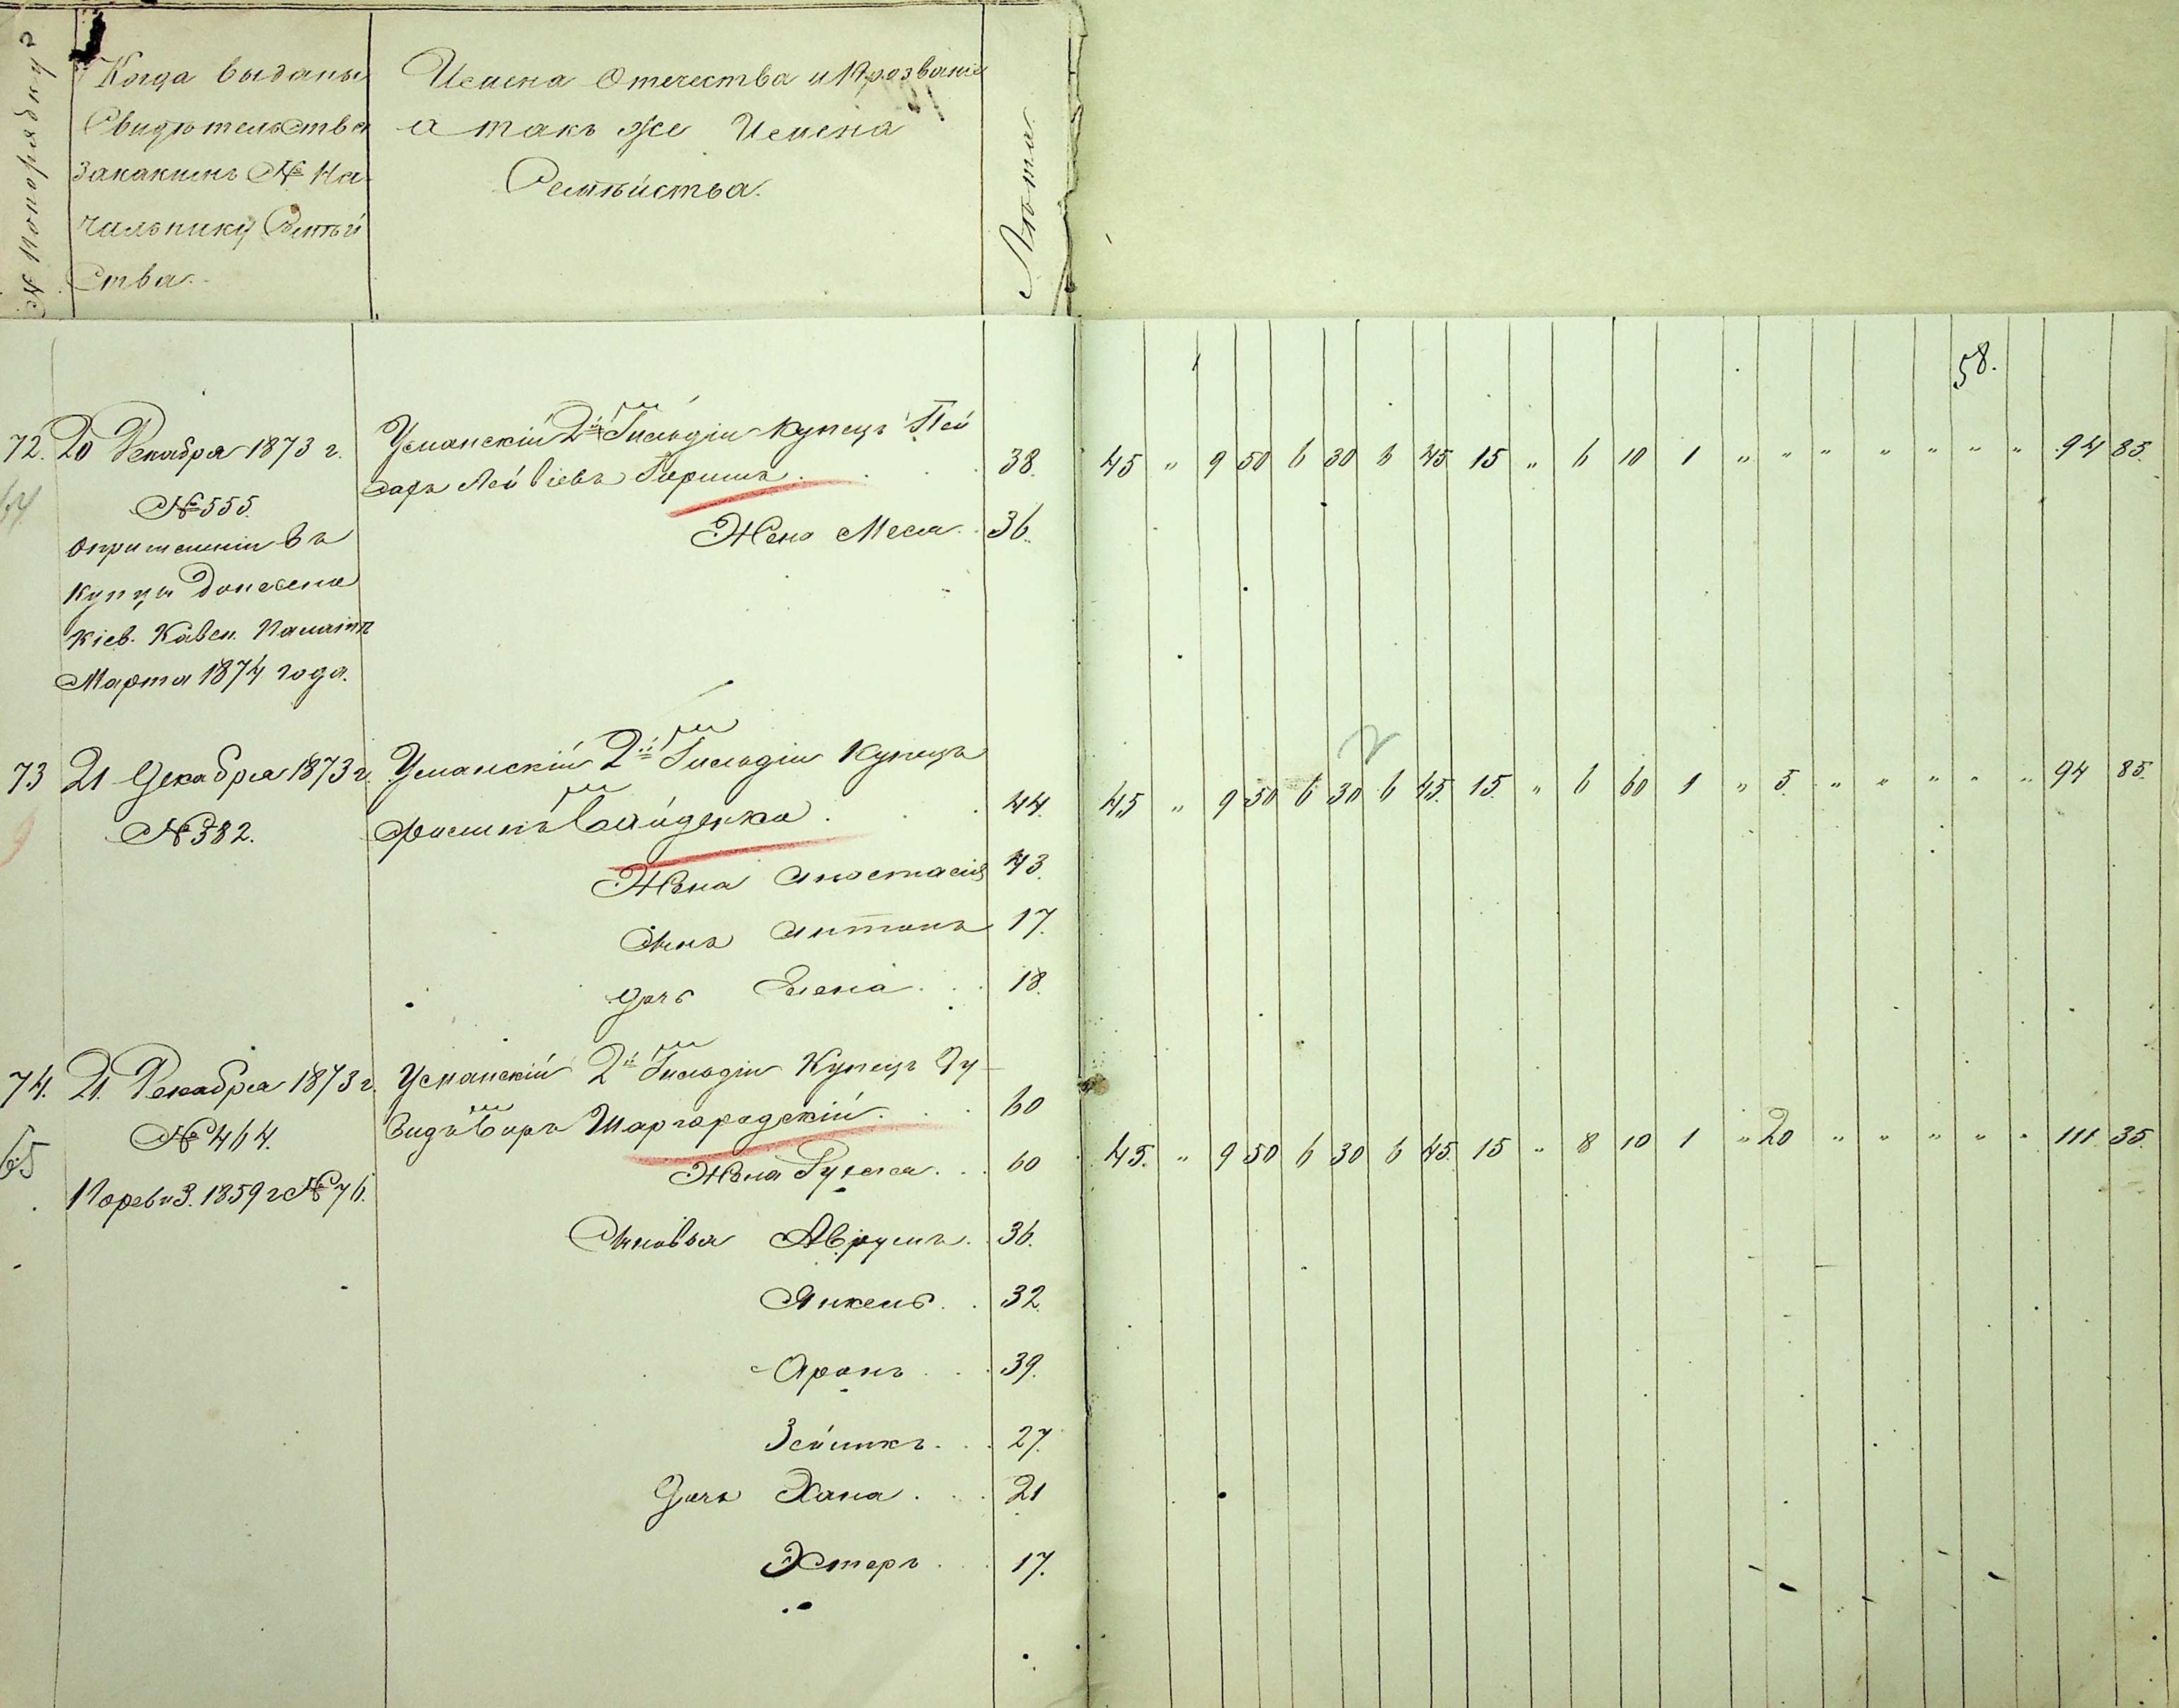 № по порядку
Когда выданы
Свидѣтельства
за какимъ № На
чальнику Семѣй
ства.
Имена Отечества и Прозванiе
а такъ же Имена
Семѣйства.
Лѣта.
58.
72. 20 Декабря 1873 г.
№ 555.
о причисленiи въ
купцы донесено
Кiев. Казен. Палатѣ
Марта 1874 года.
64
Уманскiй 2й Гильдiи Купецъ
38. 45 " 9 50 6 30 6 45 15 " 6 10 1 " " " " " " " 94 85.
Жена 36.
73 21 Декабря 1873 г.
№ 382.
Уманскiй 2й Гильдiи Купецъ
44. 45 " 9 50 6 30 6 45. 15. " 6 60 1 " 5. " " " " " 94 85.
Жена Анастасiя 43.
Сынъ Антонъ 17.
Дочь Елена 18.
74. 21. Декабря 1873 г.
№ 464.
По ревиз. 1859 г № 76.
65
Уманскiй 2й Гильдiи Купецъ Ду-
видъ Беръ Шаргородскiй 60
45. " 9 50 6 30 6 45. 15 " 8 10 1 " 20 " " " " " 111 35.
Жена 60
Сыновья Аврумъ 36.
Янкель 32.
Аронъ 39.
27.
Дочь Хана 21
Эстеръ 17.